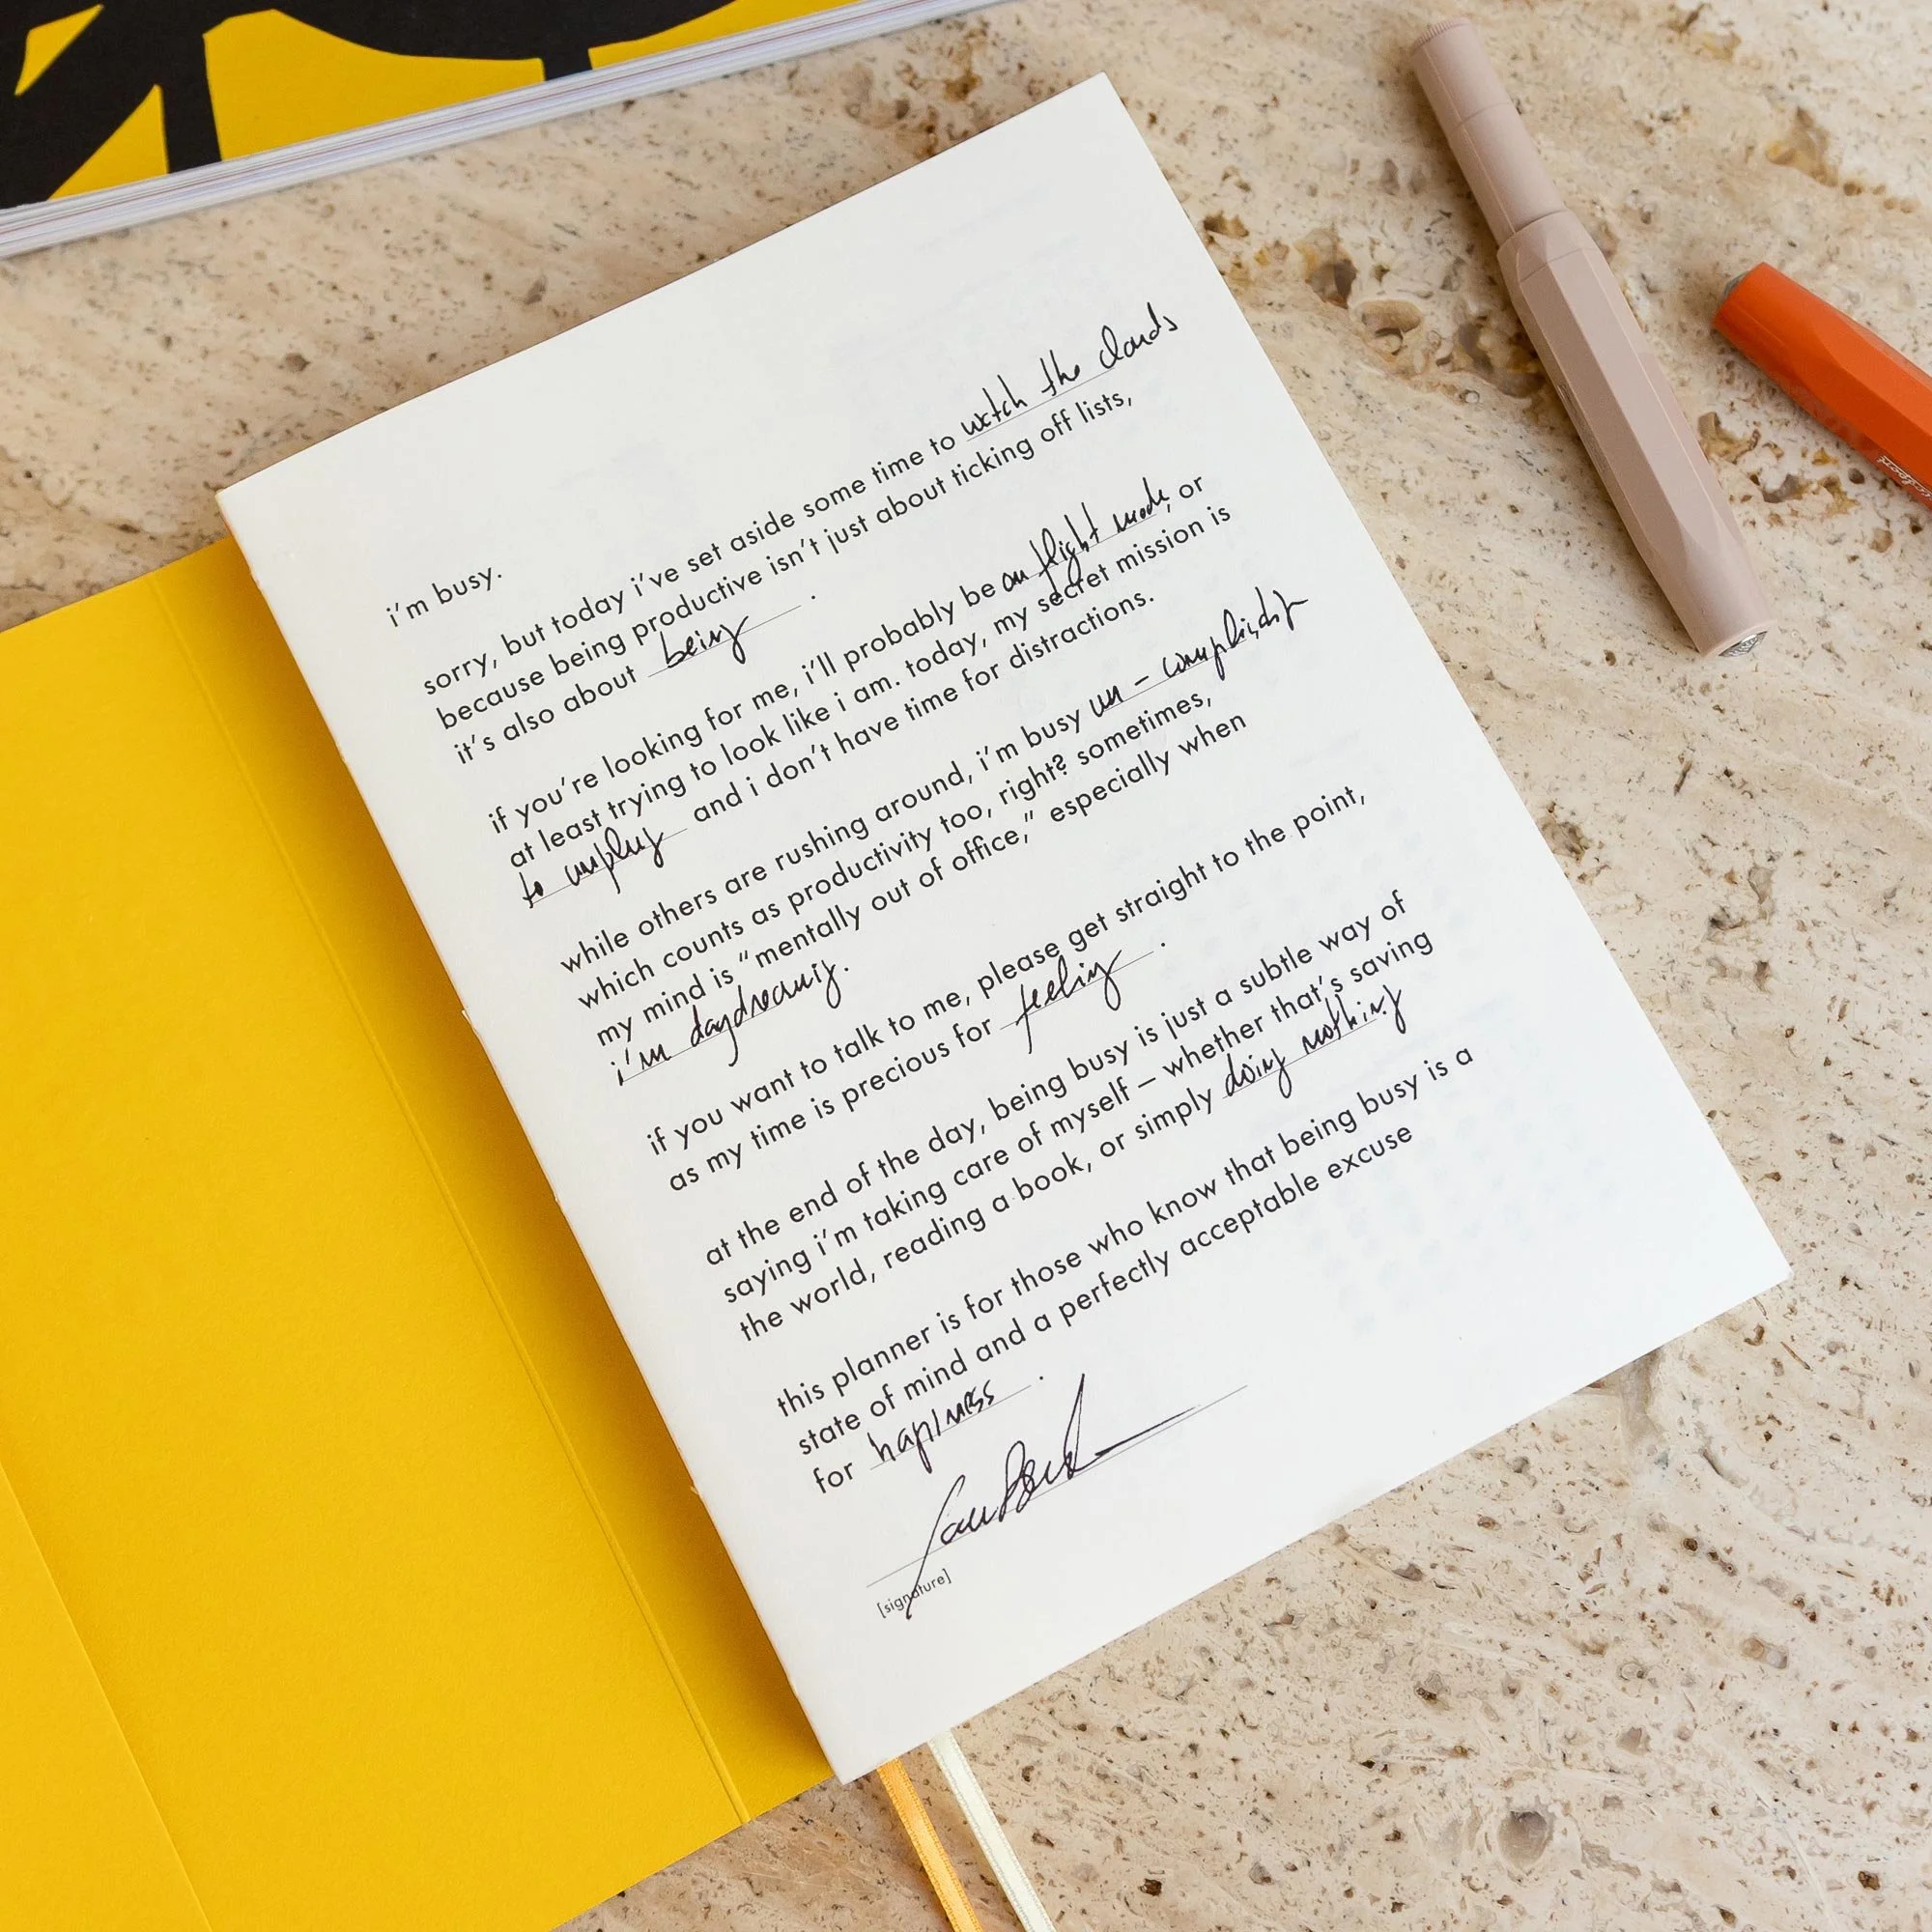 i'm busy.
sorry, but today i've set aside some time to watch the clouds
because being productive isn't just about ticking off lists,
it's also about being.
if you're looking for me, i'll probably be on flight mode, or
at least trying to look like i am. today, my secret mission is
to unplug and i don't have time for distractions.
while others are rushing around, i'm busy un-
which counts as productivity too, right? sometimes,
my mind is "mentally out of office," especially when
i'm daydreaming.
if you want to talk to me, please get straight to the point,
as my time is precious for feeling.
at the end of the day, being busy is just a subtle way of
saying i'm taking care of myself – whether that's saving
the world, reading a book, or simply doing nothing
this planner is for those who know that being busy is a
state of mind and a perfectly acceptable excuse
for hapiness.
[signature]